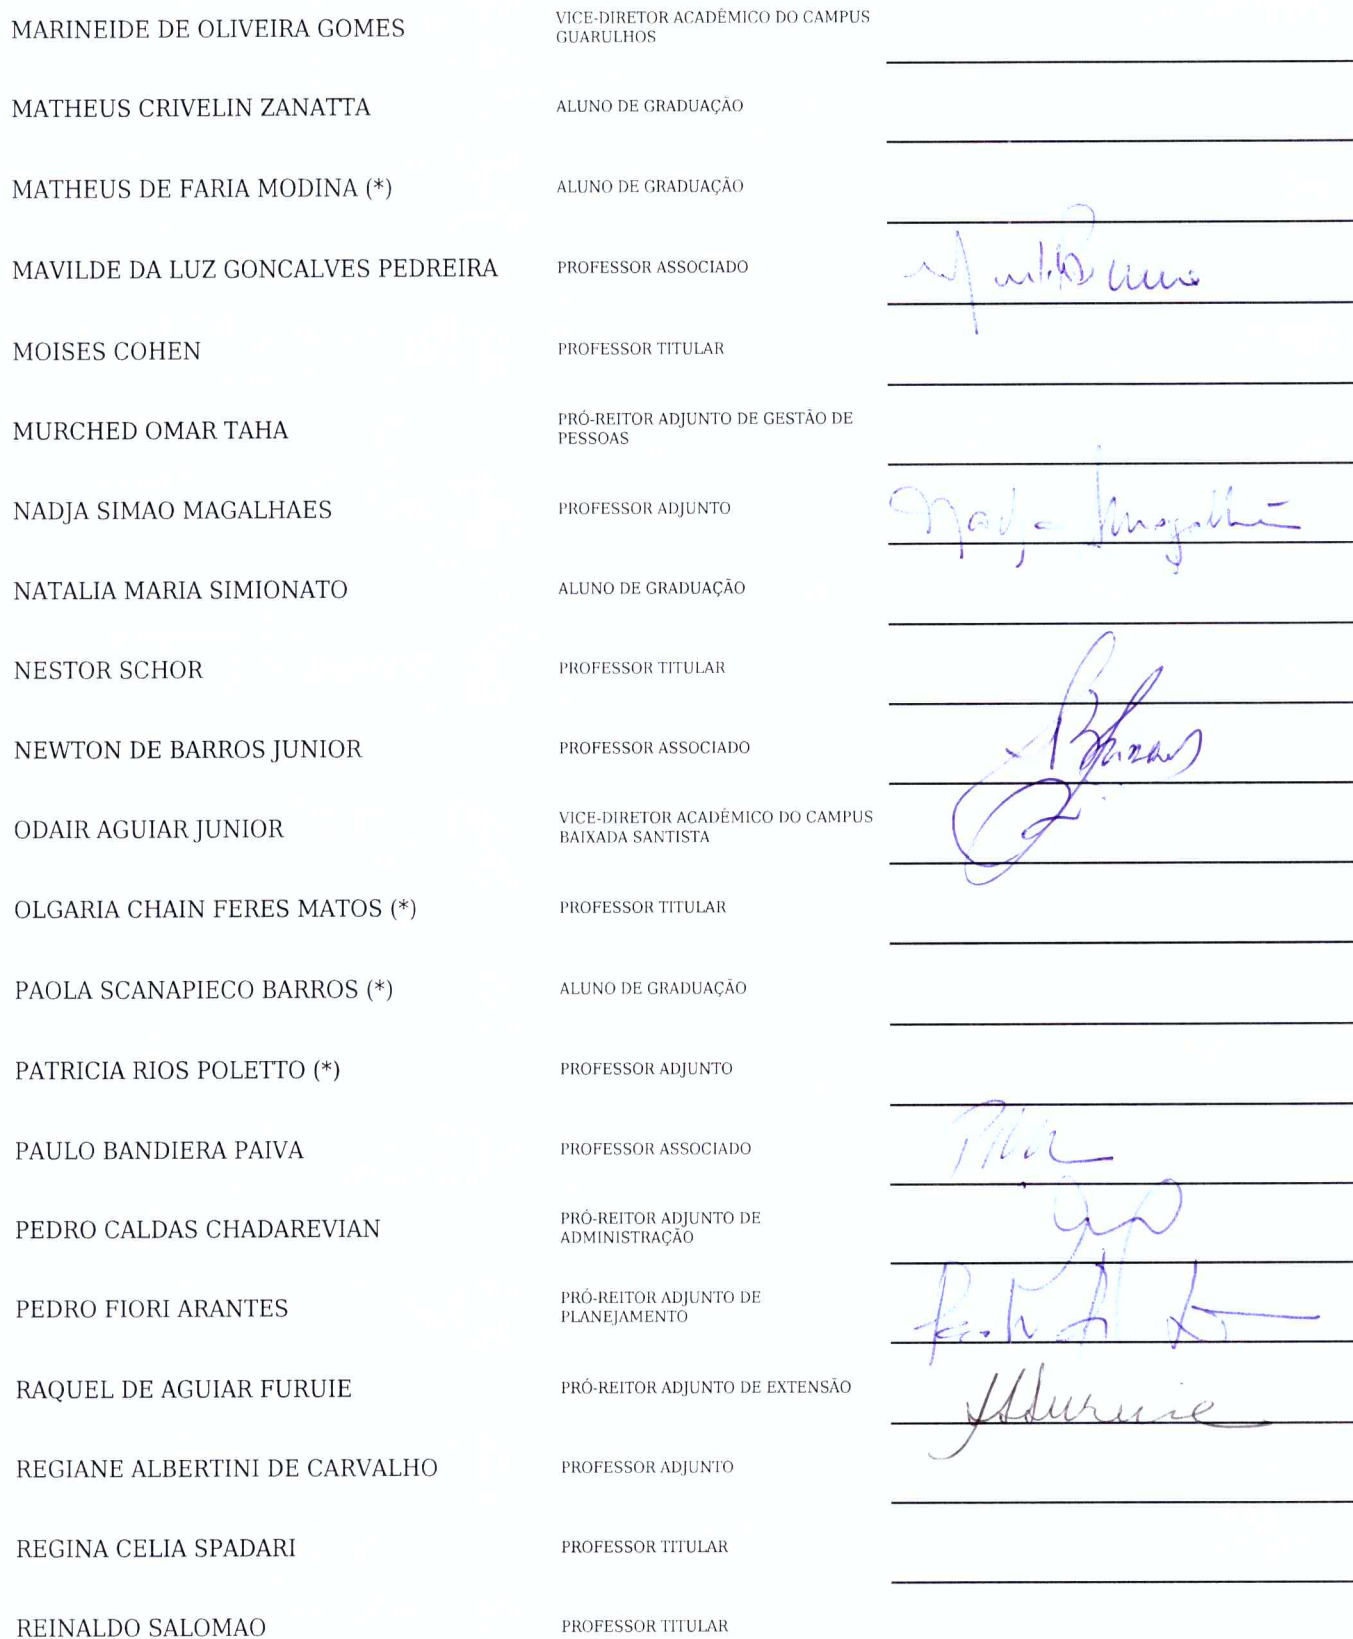 MARINEIDE DE OLIVEIRA GOMES VICE-DIRETOR ACADÊMICO DO CAMPUS
GUARULHOS
MATHEUS CRIVELIN ZANATTA ALUNO DE GRADUAÇÃO
MATHEUS DE FARIA MODINA (*) ALUNO DE GRADUAÇÃO
MAVILDE DA LUZ GONCALVES PEDREIRA PROFESSOR ASSOCIADO
MOISES COHEN PROFESSOR TITULAR
MURCHED OMAR TAHA PRÓ-REITOR ADJUNTO DE GESTÃO DE
PESSOAS
NADJA SIMAO MAGALHAES PROFESSOR ADJUNTO
NATALIA MARIA SIMIONATO ALUNO DE GRADUAÇÃO
NESTOR SCHOR PROFESSOR TITULAR
NEWTON DE BARROS JUNIOR PROFESSOR ASSOCIADO
ODAIR AGUIAR JUNIOR VICE-DIRETOR ACADÊMICO DO CAMPUS
BAIXADA SANTISTA
OLGARIA CHAIN FERES MATOS (*) PROFESSOR TITULAR
PAOLA SCANAPIECO BARROS (*) ALUNO DE GRADUAÇÃO
PATRICIA RIOS POLETTO (*) PROFESSOR ADJUNTO
PAULO BANDIERA PAIVA PROFESSOR ASSOCIADO
PEDRO CALDAS CHADAREVIAN PRÓ-REITOR ADJUNTO DE
ADMINISTRAÇÃO
PEDRO FIORI ARANTES PRÓ-REITOR ADJUNTO DE
PLANEJAMENTO
RAQUEL DE AGUIAR FURUIE PRÓ-REITOR ADJUNTO DE EXTENSÃO
REGIANE ALBERTINI DE CARVALHO PROFESSOR ADJUNTO
REGINA CELIA SPADARI PROFESSOR TITULAR
REINALDO SALOMAO PROFESSOR TITULAR